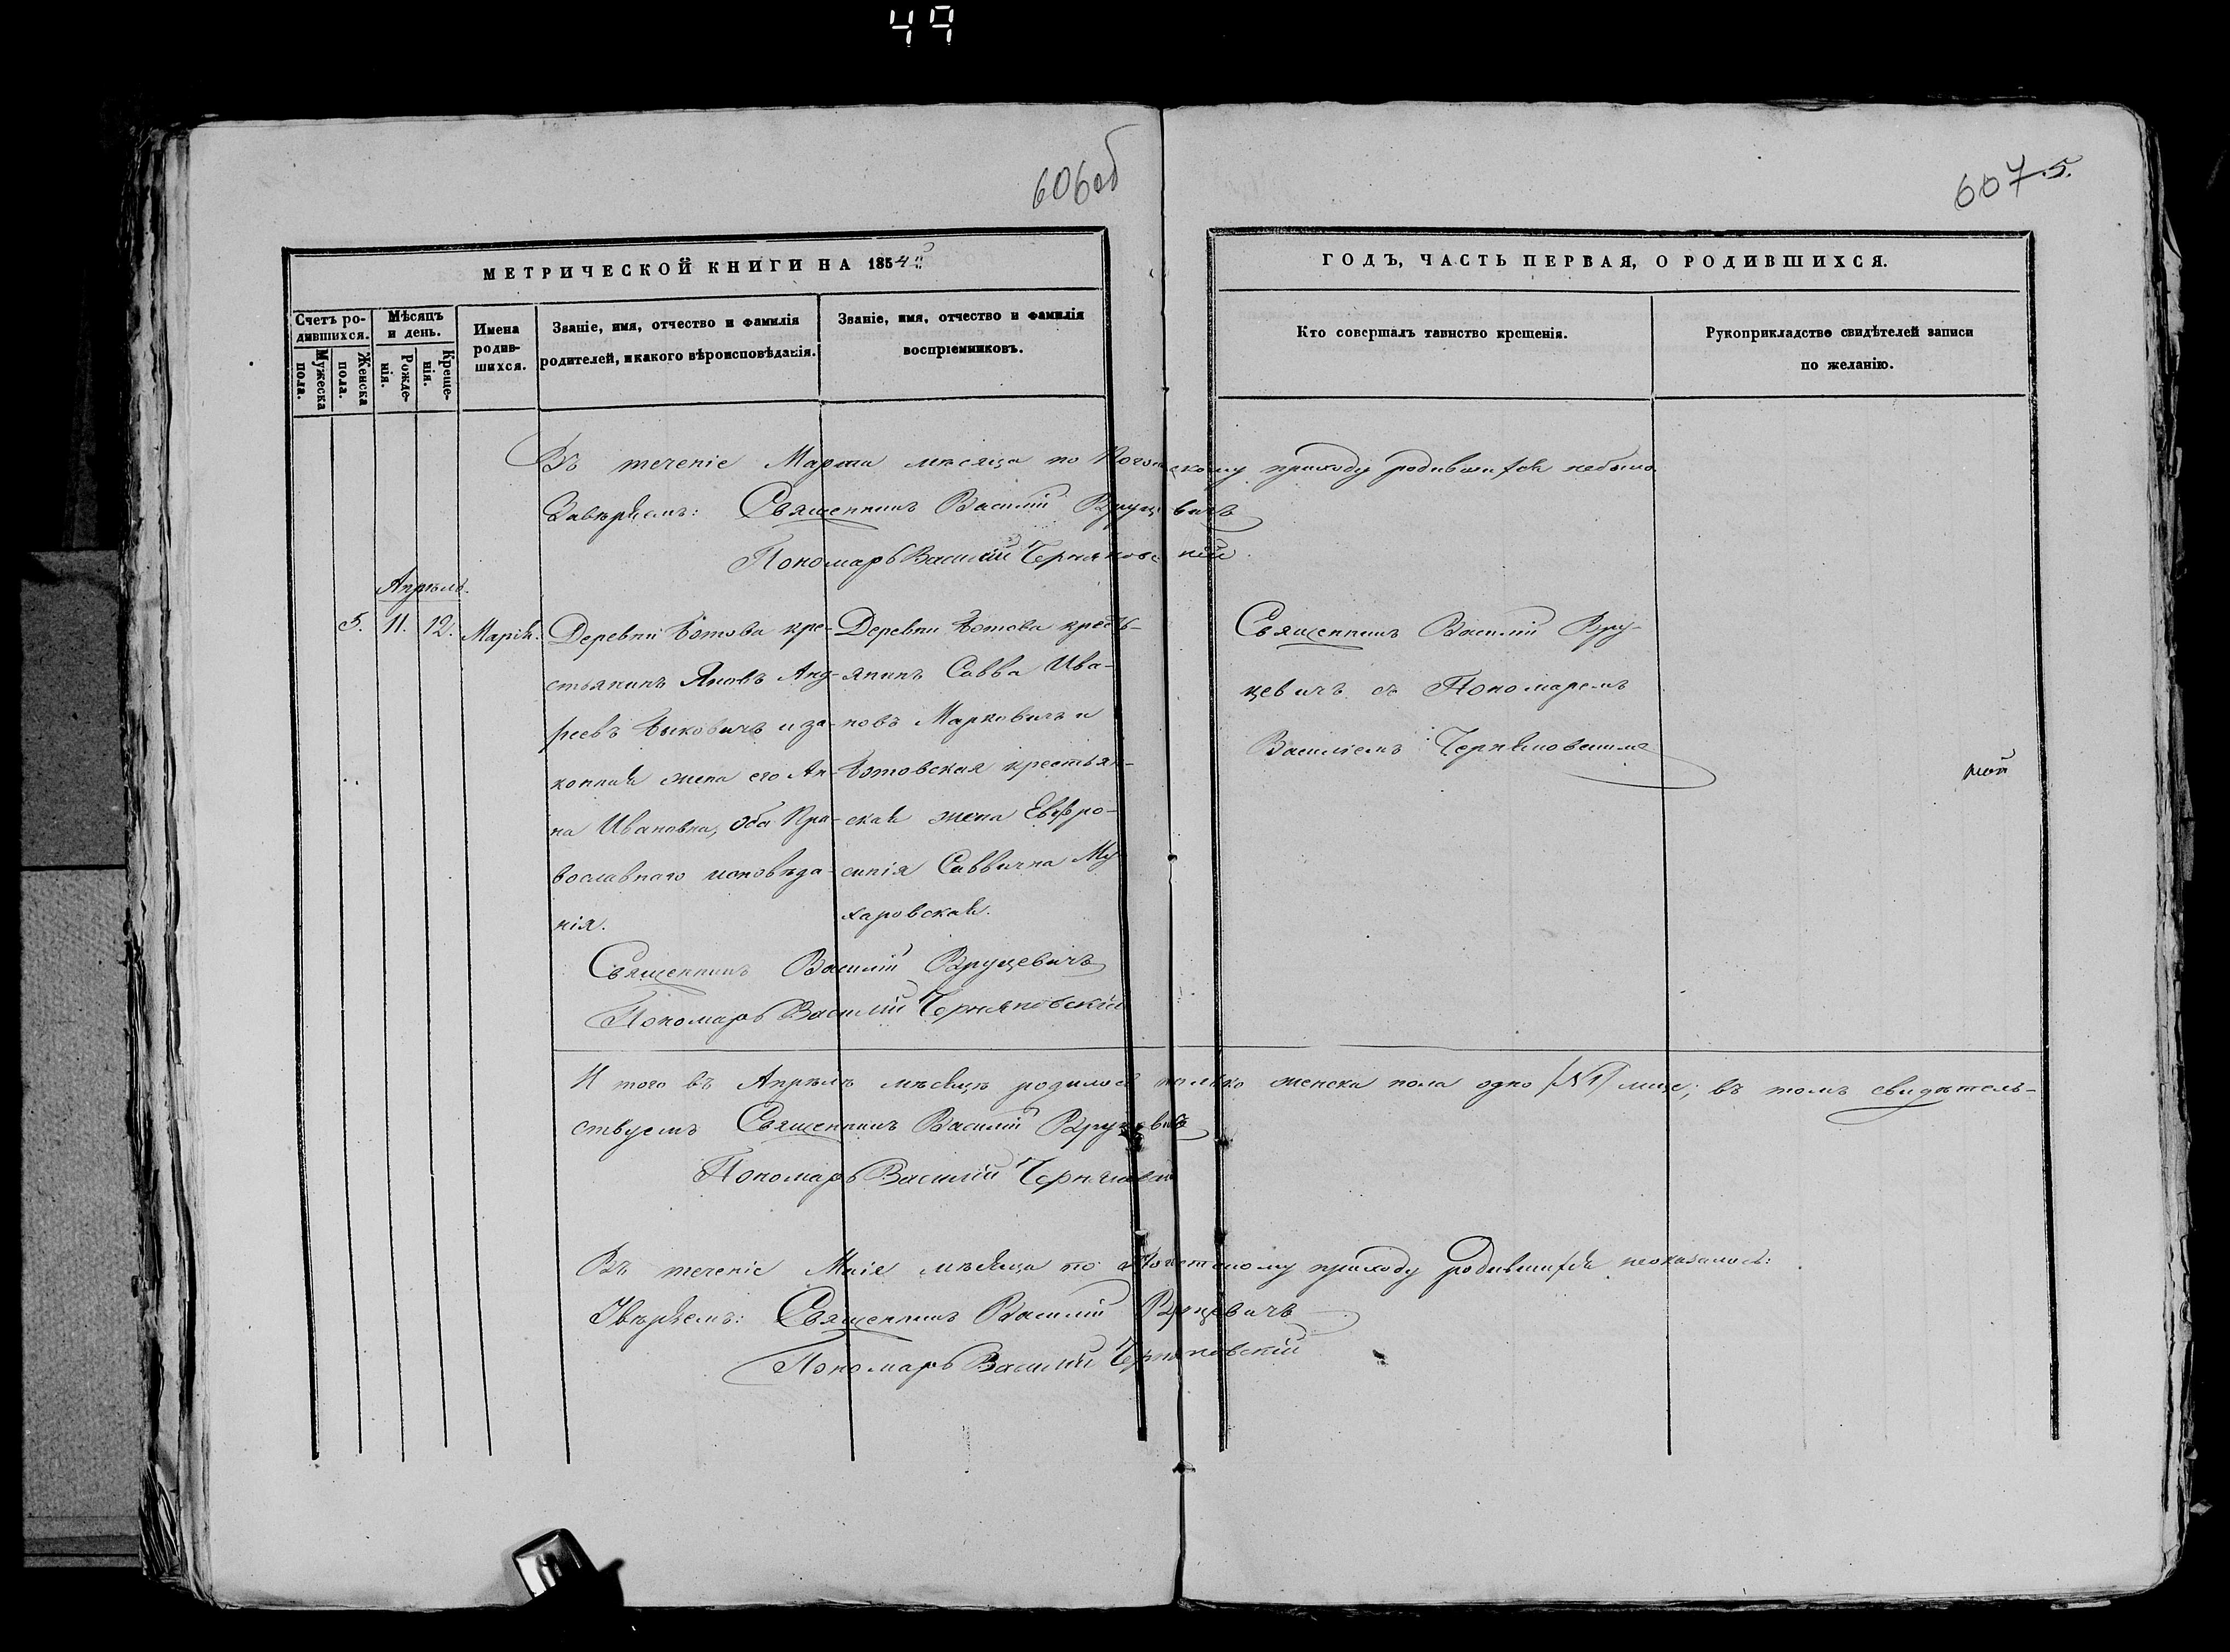 49
606 об
607 5.
МЕТРИЧЕСКОЙ КНИГИ НА 1854й
ГОДЪ, ЧАСТЬ ПЕРВАЯ, О РОДИВШИХСЯ.
Счетъ ро-
дившихся.
Мужеска
пола.
Женска
пола.
Мѣсяцъ
и день.
Рожде-
нія.
Креще-
нія.
Имена
родив-
шихся.
Званіе, имя, отчество и фамилія
родителей, и какого вѣроисповѣданія.
Званіе, имя, отчество и фамилія
воспріемниковъ.
Кто совершалъ таинство крещенія.
Рукоприкладство свидѣтелей записи
по желанію.
Въ теченіе Марта мѣсяца по приходу родившихся небыло
Завѣряемъ: Священникъ Василій Вруцевичъ
Пономарь Василій Черняковскій
Апрѣль.
5. 11. 12. Марія.
Деревни Ботова кре-
стьянинъ Яковъ Анд-
реевъ Быковичъ и за-
конная жена его Ан-
на Ивановна, оба Пра-
вославнаго исповѣда-
нія.
Деревни Ботова кресть-
янинъ Савва Ива-
новъ Марковичъ и
Ботовская крестьян-
ская жена Евфро-
синія Саввична Му-
харовская.
Священникъ Василій Вру-
цевичъ съ Пономаремъ
Василіемъ Черняковскимъ
Священникъ Василій Вруцевичъ
Пономарь Василій Черняковскій
И того въ Апрѣлѣ мѣсяцѣ родилось только женска пола одно /№1/ лице; въ томъ свидѣтель-
ствуемъ Священникъ Василій Вруцевичъ
Пономарь Василій
Въ теченіе Маія мѣсяца по приходу родившихся неоказалось:
Увѣряемъ: Священникъ Василій Вруцевичъ
Пономарь Василій Черняковскій